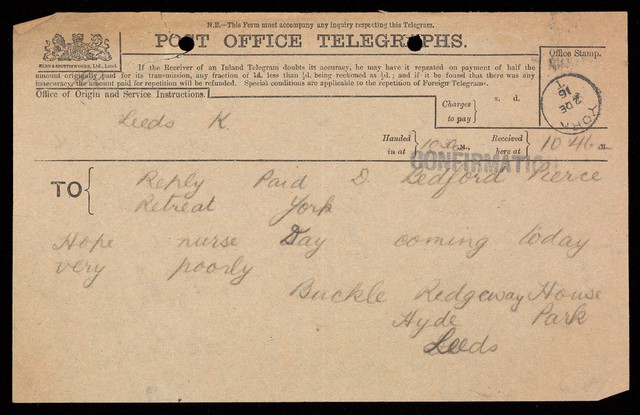 N.B.—This Form must accompany any inquiry respecting this Telegram.
POST OFFICE TELEGRAPHS.
If the Receiver of an Inland Telegram doubts its accuracy, he may have it repeated on payment of half the
amount originally paid for its transmission, any fraction of 1d. less than ½d. being reckoned as ½d.; and if it be found that there was any
inaccuracy, the amount paid for repetition will be refunded. Special conditions are applicable to the repetition of Foreign Telegrams.
Office of Origin and Service Instructions.
Office Stamp.
YORK
DE 2
16
Charges to pay
s. d.
Leeds K.
Handed in at 10 30 M.,
Received here at 10 46 M.
CONFIRMATION
TO
Reply Paid D. Bedford Pierce
Retreat York
Hope nurse Day coming today
very poorly
Buckle Redgeway House
Hyde Park
Leeds